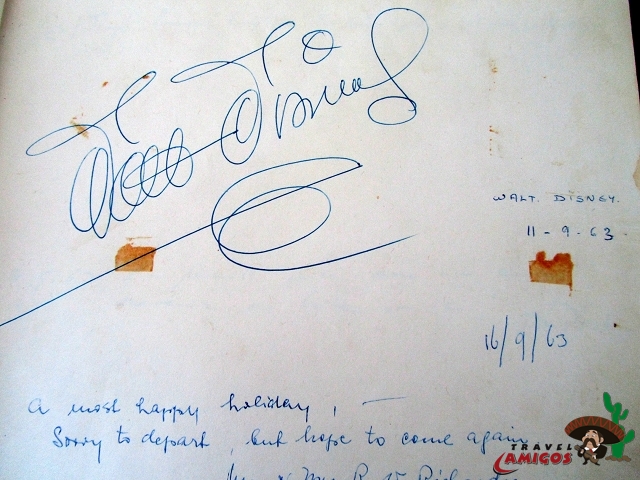 Walt Disney
WALT. DISNEY.
11-9-63
16/9/63
A most happy holiday, —
Sorry to depart, but hope to come again
TRAVEL
AMIGOS